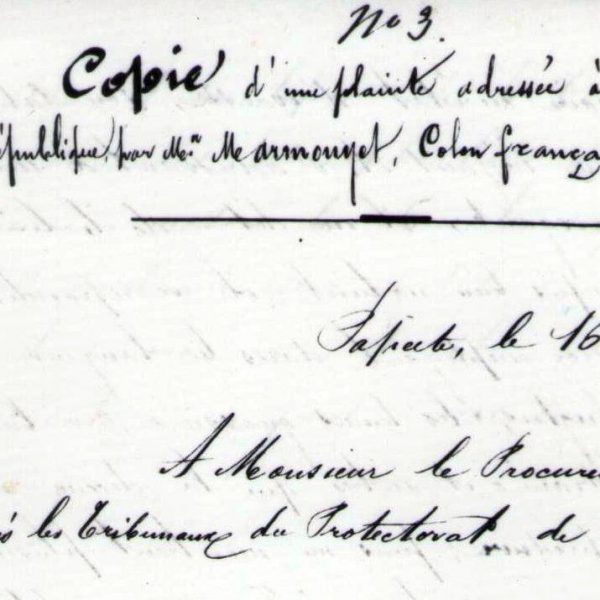 No 3.
Copie d'une plainte adressée à
épublique, par Mr. Marmouyet, Colon frança
Papeete, le 16
A Monsieur le Procure
ès les Tribunaux du Protectorat de